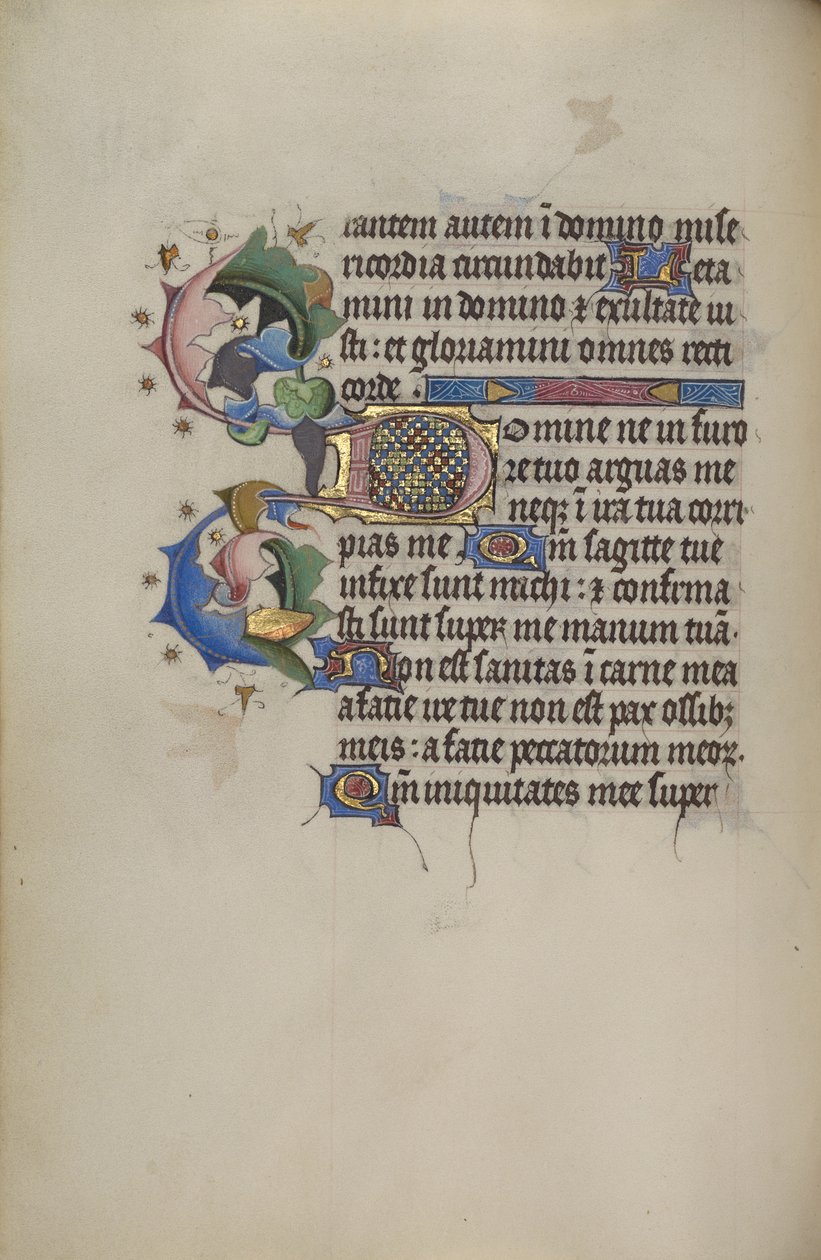 rantem autem ī domino mise
ricordia circundabit Leta
mini in domino ⁊ exultate iu
sti : et gloriamini omnes recti
corde .
Domine ne in furo
re tuo arguas me
neqꝫ ī ira tua corri
pias me . Qm̄ sagitte tue
infixe sunt michi : ⁊ confirma
sti sunt super me manum tuā .
Non est sanitas ī carne mea
a facie ire tue non est pax ossibꝫ
meis : a facie peccatorum meoꝝ .
Qm̄ iniquitates mee super